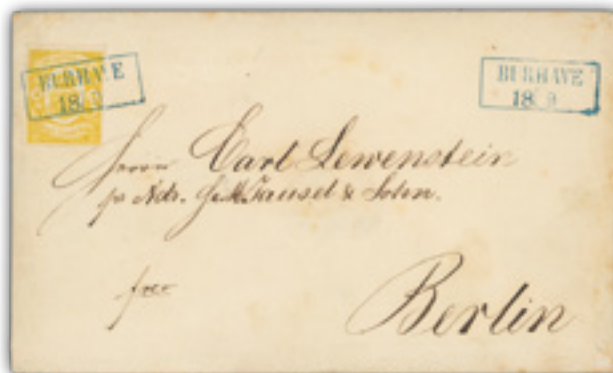 BURHAVE
18/9
BURHAVE
18/9
Herrn Carl Lewenstein
pr Adr. & Sohn.
frco
Berlin